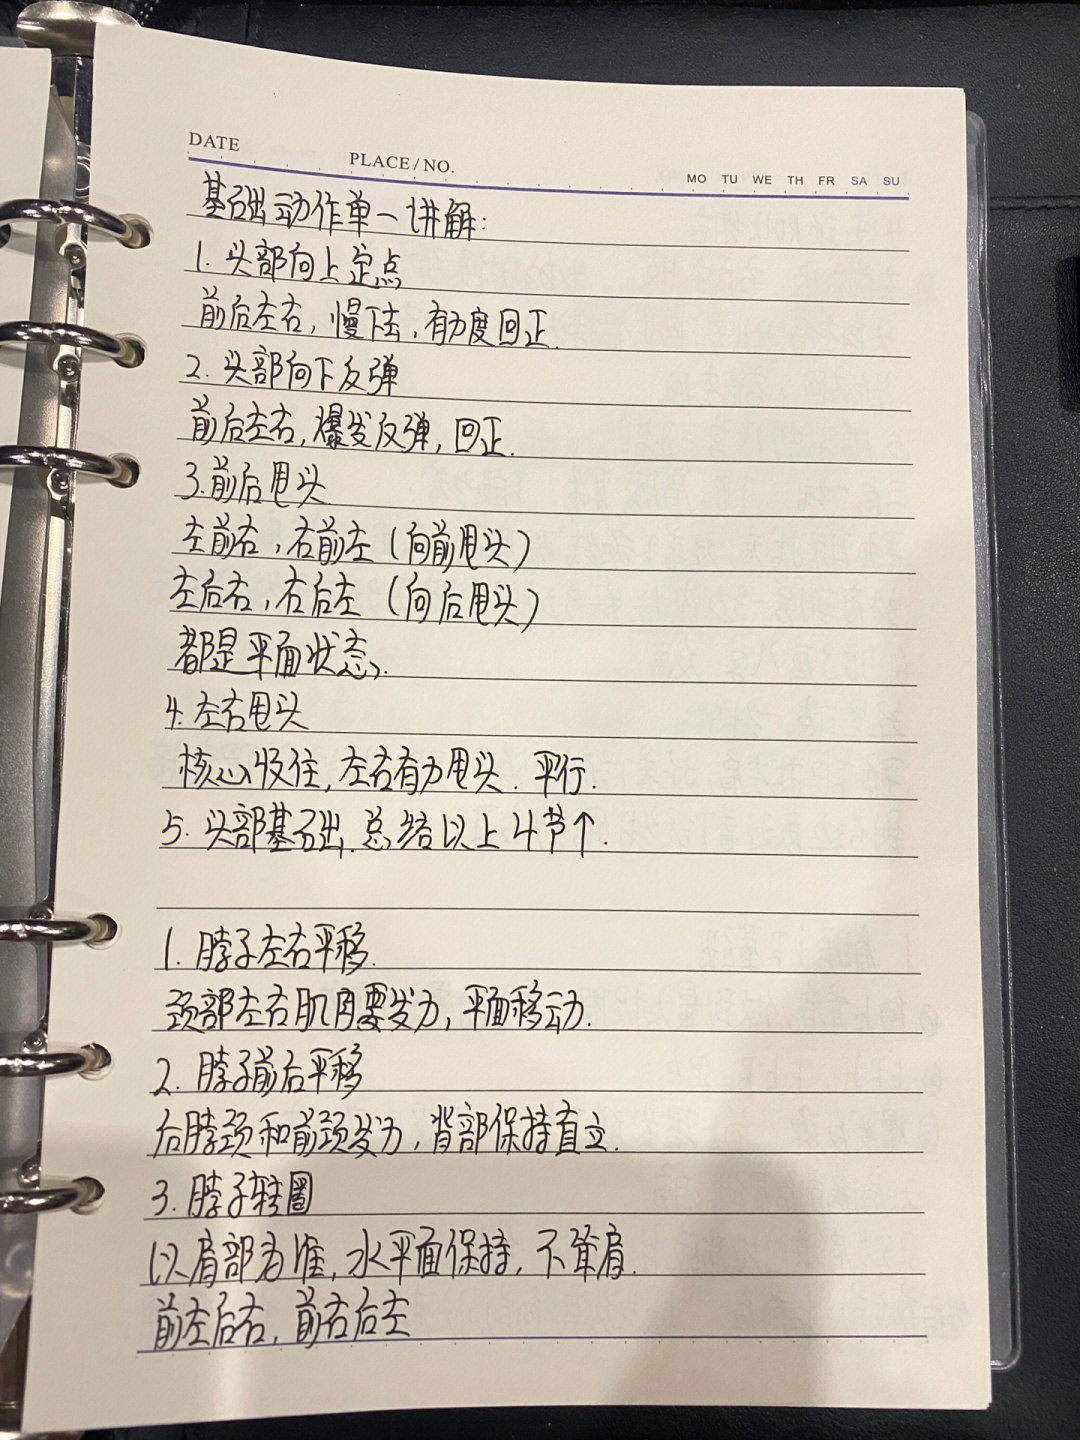 DATE
PLACE/NO.
MO TU WE TH FR SA SU
基础动作单一讲解:
1. 头部向上定点
前后左右,慢下去,有力度回正.
2. 头部向下反弹
前后左右,爆发反弹,回正.
3.前后甩头
左前右,右前左(向前甩头)
左后右,右后左(向后甩头)
都是平面状态.
4.左右甩头
核心收住,左右有力甩头.平行.
5.头部基础.总结以上4节个.
1. 脖子左右平移.
颈部左右肌肉要发力,平面移动.
2. 脖子前后平移
后脖颈和前颈发力,背部保持直立.
3. 脖子转圈
以肩部为准,水平面保持,不耸肩.
前左后右,前右后左